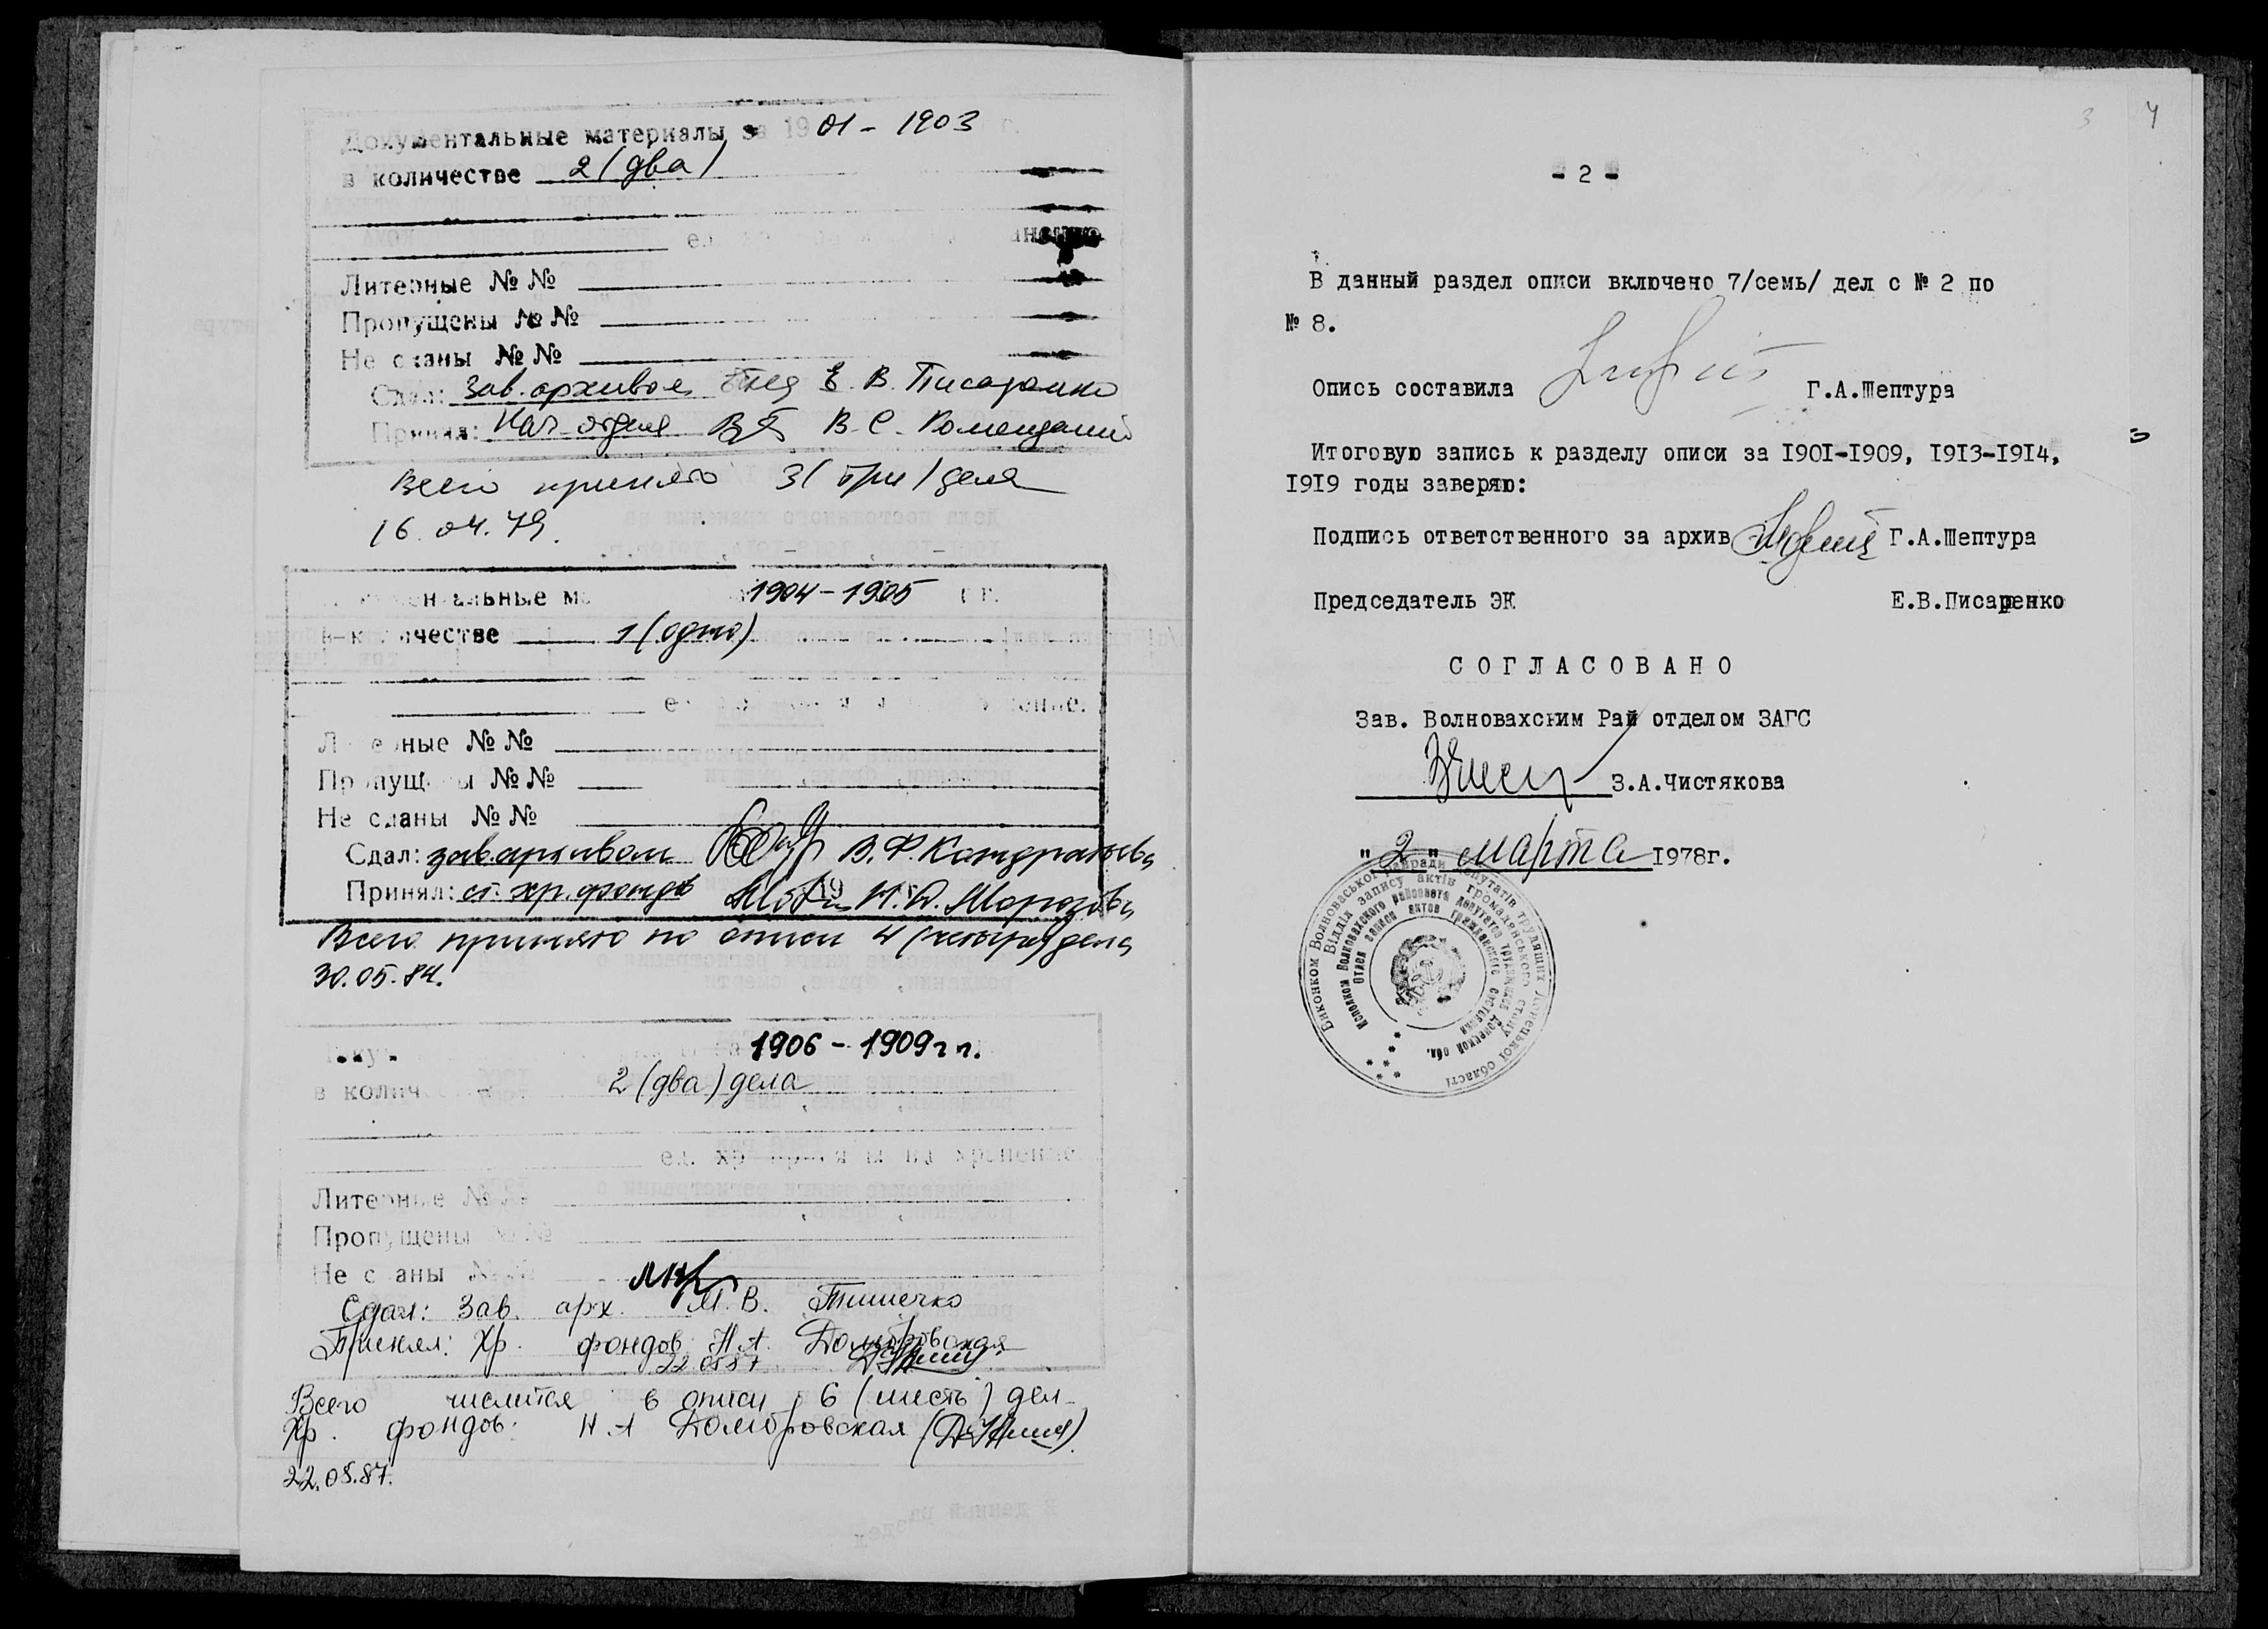 Документальные материалы за 1901 - 1903 г.
в количестве 2 (два)
Литерные № №
Пропущены № №
Не сданы № №
Сдал: Зав. архивом Е. В. Писаренко
Принял: Нач. отдела В. С.
Всего принято 3 (три) дела
16.04.79.
1904 - 1905 г г.
в количестве 1 (одно)
Литерные № №
Пропущены № №
Не сданы № №
Сдал: зав. архивом В. Ф. Кондратьева
Принял: ст. хр. фондов Н. Ю. Морозова
Всего принято по описи 4 (четыре) дела
30.05.84.
1906 - 1909 г г.
в количестве 2 (два) дела
ед. хр. приняты на хранение
Литерные № №
Пропущены № №
Не сданы № №
Сдал: Зав. арх. М. В. Тимечко
Принял: Хр. фондов Н. А. Домбровская
22.05.87
Всего числится в описи 6 (шесть) дел
Хр. фондов: Н А Домбровская
22.05.87.
3 4
- 2 -
В данный раздел описи включено 7/семь/ дел с № 2 по
№ 8.
Опись составила Г.А.Шептура
Итоговую запись к разделу описи за 1901-1909, 1913-1914,
1919 годы заверяю:
Подпись ответственного за архив Г.А.Шептура
Председатель ЭК Е.В.Писаренко
С О Г Л А С О В А Н О
Зав. Волновахским Рай отделом ЗАГС
З.А.Чистякова
" 2 " марта 1978г.
Виконком Волноваської райради депутатів трудящих Донецької області
Відділ запису актів громадянського стану
Исполком Волновахского райсовета депутатов трудящихся Донецкой обл.
Отдел записи актов гражданского состояния